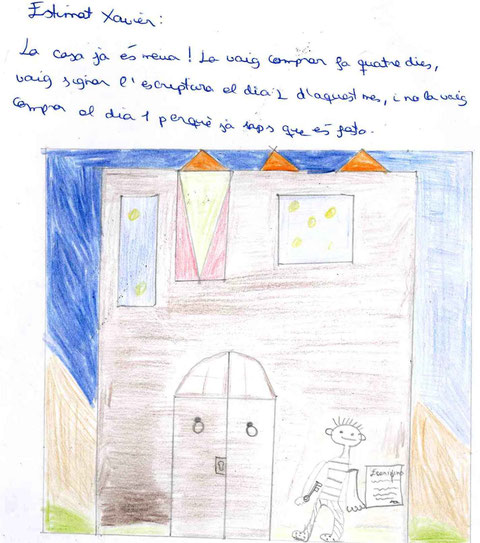 Estimat Xavier:
La casa ja és meva! La vaig comprar fa quatre dies,
vaig signar l'escriptura el dia 2 d'aquest mes, i no la vaig
comprar el dia 1 perquè ja saps que és festa.
Escriptura